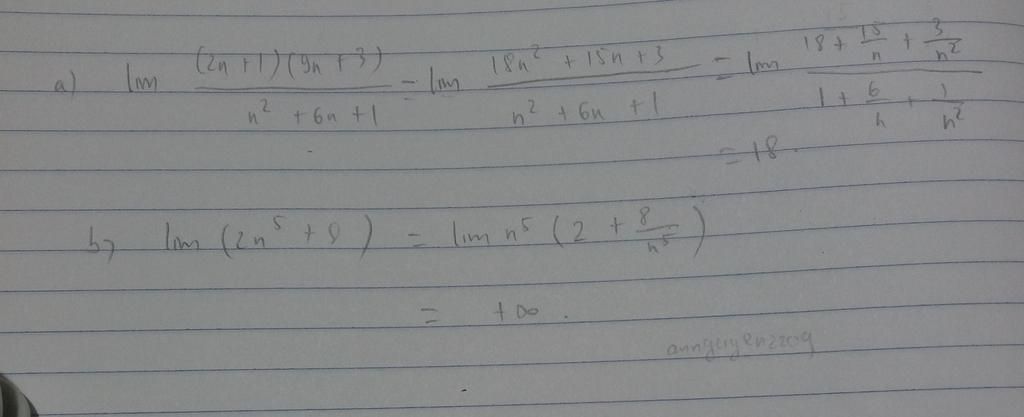 a) lim (2n+1)(9n+3) / n² + 6n + 1 = lim 18n² + 15n + 3 / n² + 6n + 1 = lim 18 + 15/n + 3/n² / 1 + 6/n + 1/n²
= 18.
b) lim (2n⁵ + 8) = lim n⁵ (2 + 8/n⁵)
= +∞.